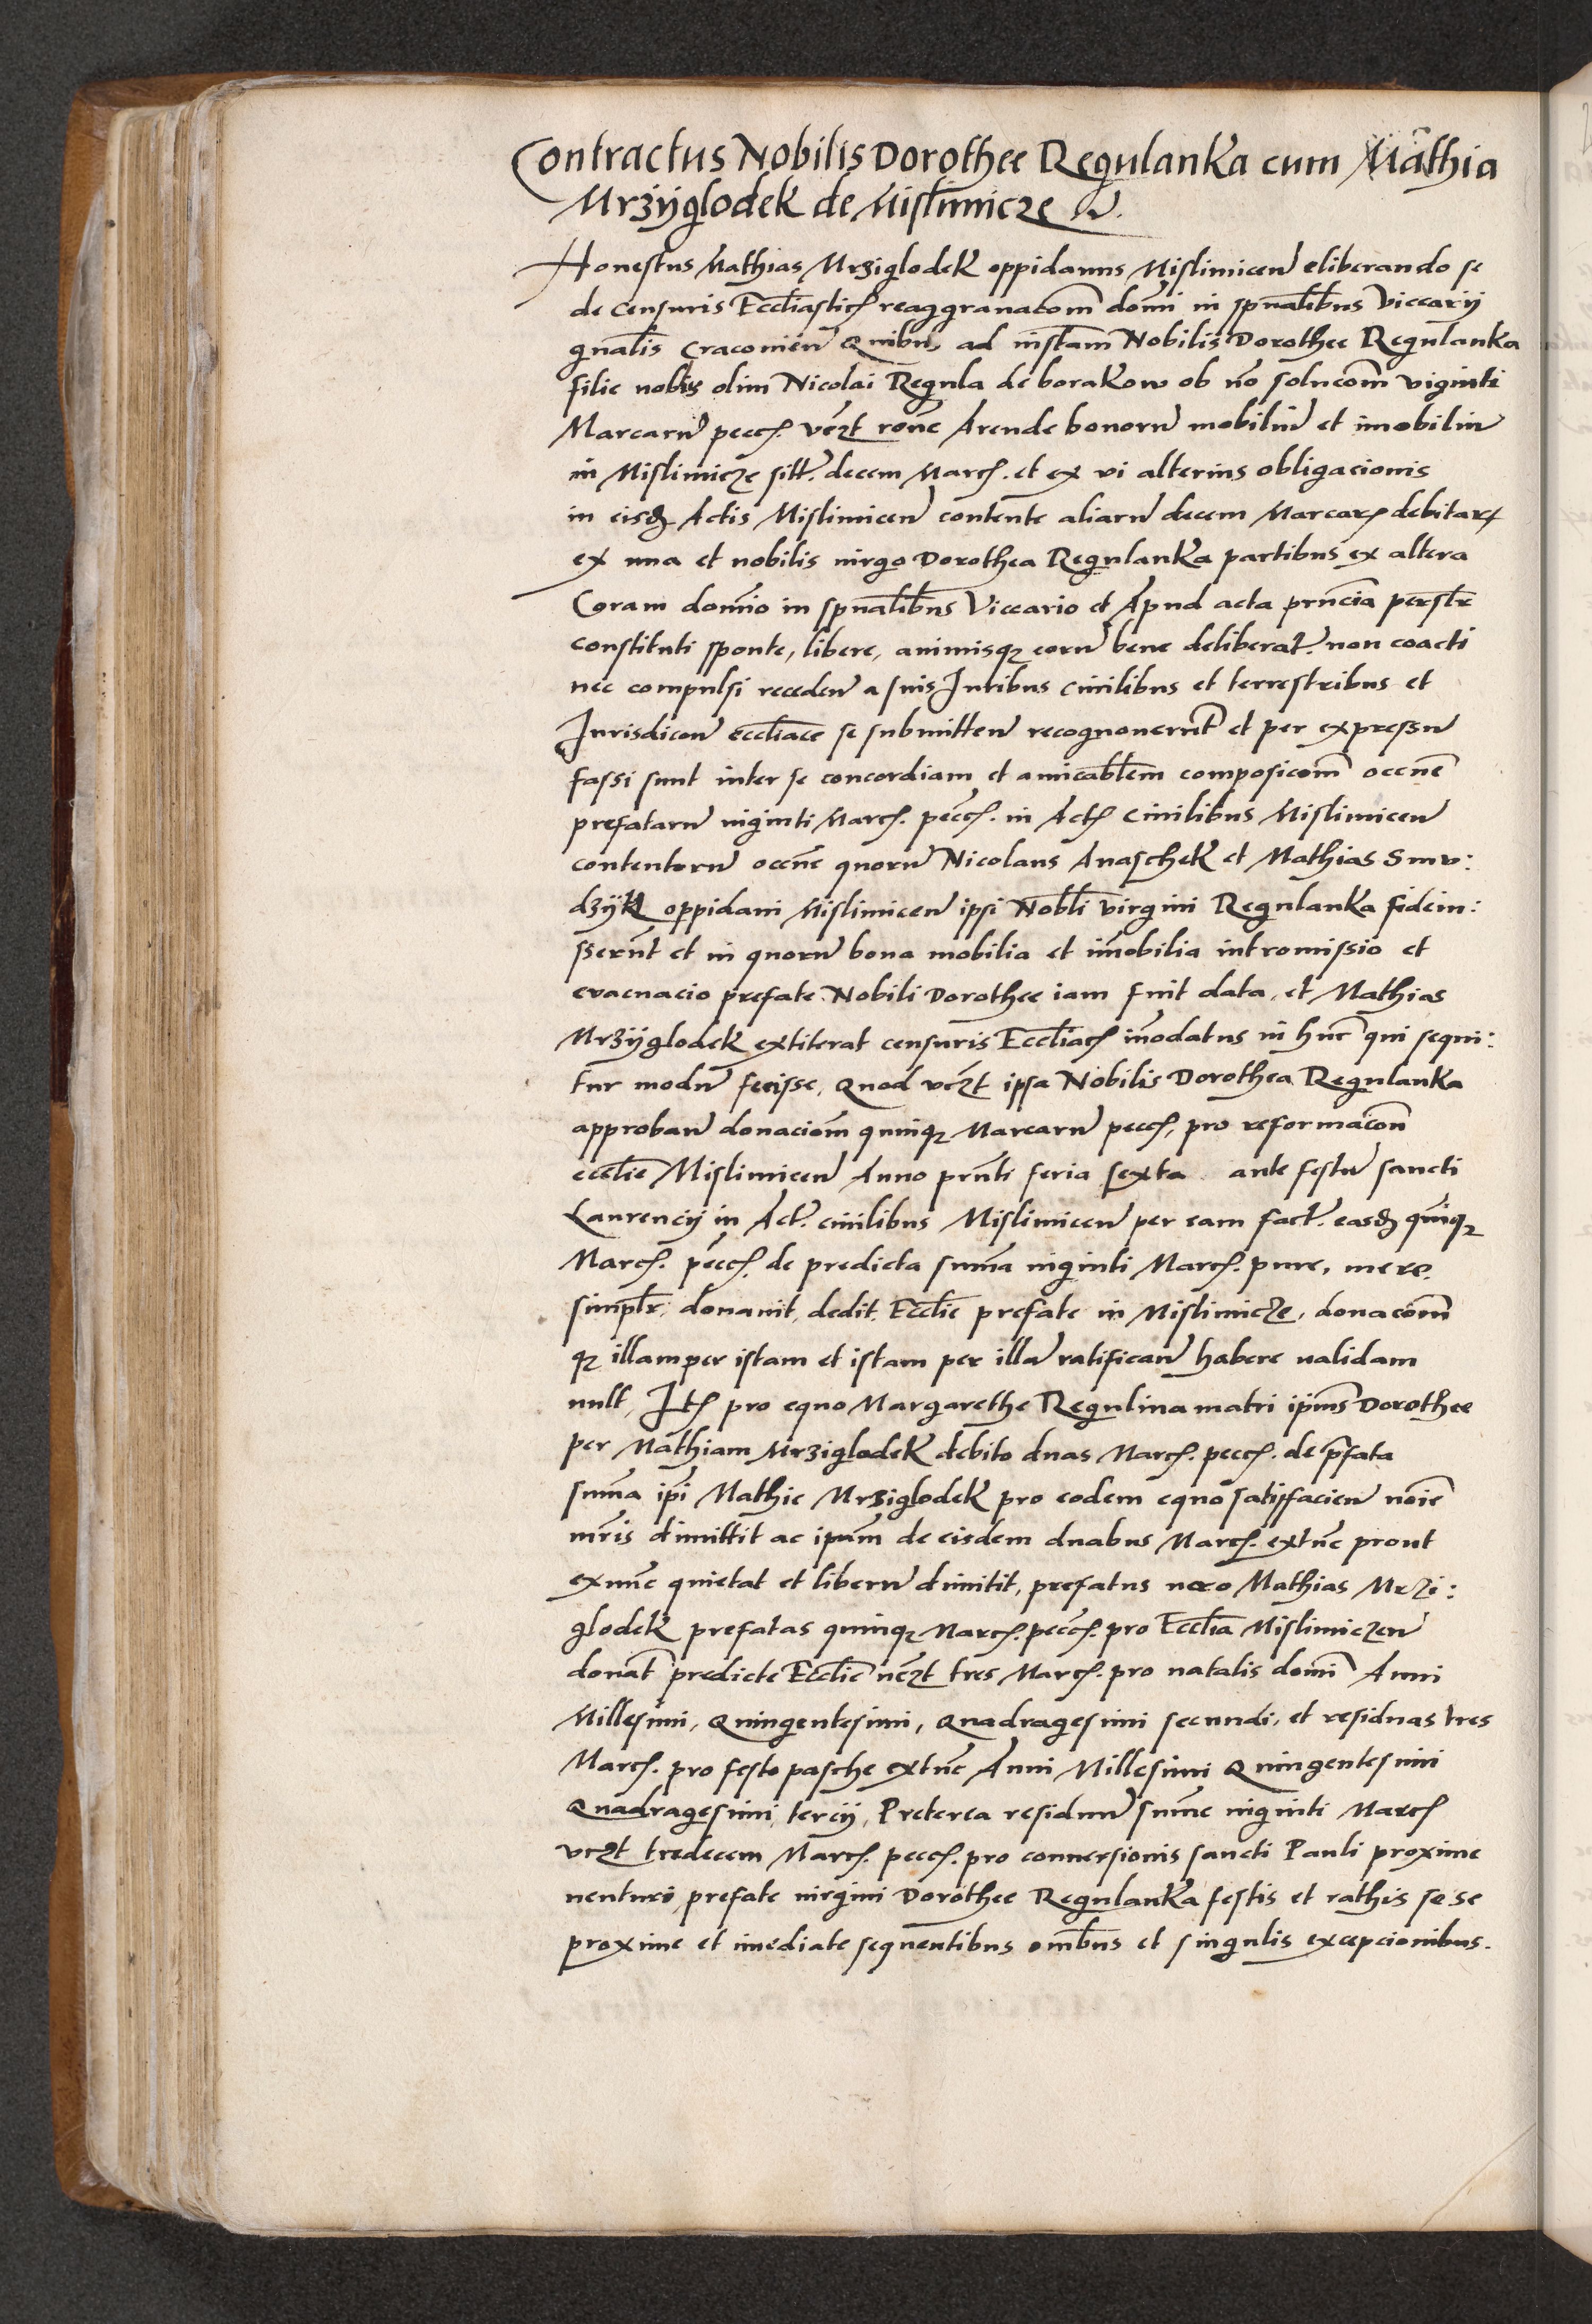 Contractus Nobilis Dorothee Regulanka cum Mathia
Mrzyglodek de Mislimicze
Honestus Mathias Mrziglodek oppidanus Mislimiceñ eliberando se
de Censuris Eccl̃iasticꝭ reaggravacom̃ domĩ in spũalibus Viccarij
gñalis Cracovieñ Quibus ad instãm Nobilis Dorothee Regulanka
filie nobis olim Nicolai Regula de borakow ob nõ solucom̃ viginti
Marcarũ peccꝭ. vcꝫt rõne Arende bonorũ mobiliũ et imobiliũ
in Mislimicze sitt. decem Marcꝭ. et ex vi alterius obligacionis
in eisdꝫ Actis Mislimiceñ contente aliarũ decem Marcarꝝ debitarꝝ
ex una et nobilis virgo Dorothea Regulanka partibus ex altera
Coram domĩo in spũalibus Viccario et Apud acta prñcia perslr̃
constituti sponte, libere, animisqꝫ eorũ bene deliberat. non coacti
nec compulsi recedeñ a suis Juribus civilibus et terrestribus et
Jurisdicoñ eccl̃iace se submitteñ recognoverũt et per expressũ
fassi sunt inter se concordiam et amicabl̃em composicom̃ occñe
prefatarũ viginti Marcꝭ. peccꝭ. in Actꝭ Civilibus Mislimiceñ
contentorũ occñe quorũ Nicolaus Anaschek et Mathias Smo:
dzyk oppidani Mislimiceñ ipsi Nobl̃i virgini Regulanka fideiu:
sserũt et in quorũ bona mobilia et im̃obilia intromissio et
evacuacio prefate Nobili Dorothee iam fuit data, et Mathias
Mrzyglodek extiterat censuris Eccl̃iacꝭ in̄odatus in hũc qui sequi:
tur modũ fecisse, Quod vcꝫt ipsa Nobilis Dorothea Regulanka
approbañ donaciom̃ quinqꝫ Marcarũ peccꝭ, pro reformacõn
eccl̃ie Mislimiceñ Anno prñti feria sexta ante festũ sancti
Laurencij in Act. civilibus Mislimiceñ per eam fact. easdꝫ quĩqꝫ
Marcꝭ. peccꝭ. de predicta sum̃a viginti Marcꝭ. pure, mere
simplr̃. donavit, dedit. Eccl̃ie prefate in Mislimicze, donacom̃
qꝫ illam per istam et istam per illã ratificañ habere validam
vult, Itꝭ pro equo Margarethe Regulina matri ip̃ius Dorothee
per Mathiam Mrziglodek debito duas Marcꝭ. peccꝭ. de p̃fata
sum̃a ip̃i Mathie Mrziglodek pro eodem equo satisfacieñ nõie
mr̃is dimittit ac ip̃um de eisdem duabus Marcꝭ. extũc prout
exnũc quietat et liberũ dimitit, prefatus vero Mathias Mrzi:
glodek prefatas quinqꝫ Marcꝭ. peccꝭ. pro Eccl̃ia Mislimiczeñ
donat̃ predicte Eccl̃ie vcꝫt tres Marcꝭ. pro natalis domĩ Anni
Millesimi, Quingentesimi, Quadragesimi secundi, et residuas tres
Marcꝭ. pro festo pasche extũc Anni Millesimi Quingentesimi
Quadragesimi, tercij, Preterea residuũ sum̃e viginti Marcꝭ
vcꝫt tredecem Marcꝭ. peccꝭ. pro conversionis sancti Pauli proxime
venturo, prefate virgini Dorothee Regulanka festis et rathis se se
proxime et im̃ediate sequentibus om̃ibus et singulis excepcionibus.